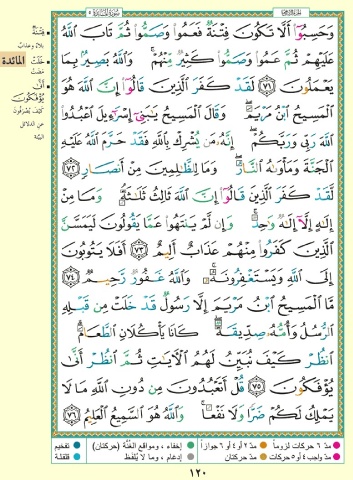 سُورَةُ المَائِدَةِ ٥
وَحَسِبُوٓا۟ أَلَّا تَكُونَ فِتْنَةٌ فَعَمُوا۟ وَصَمُّوا۟ ثُمَّ تَابَ ٱللَّهُ
عَلَيْهِمْ ثُمَّ عَمُوا۟ وَصَمُّوا۟ كَثِيرٌ مِّنْهُمْ ۚ وَٱللَّهُ بَصِيرٌۢ بِمَا
يَعْمَلُونَ ٧١ لَقَدْ كَفَرَ ٱلَّذِينَ قَالُوٓا۟ إِنَّ ٱللَّهَ هُوَ
ٱلْمَسِيحُ ٱبْنُ مَرْيَمَ ۖ وَقَالَ ٱلْمَسِيحُ يَٰبَنِىٓ إِسْرَٰٓءِيلَ ٱعْبُدُوا۟
ٱللَّهَ رَبِّى وَرَبَّكُمْ ۖ إِنَّهُۥ مَن يُشْرِكْ بِٱللَّهِ فَقَدْ حَرَّمَ ٱللَّهُ عَلَيْهِ
ٱلْجَنَّةَ وَمَأْوَىٰهُ ٱلنَّارُ ۖ وَمَا لِلظَّٰلِمِينَ مِنْ أَنصَارٍ ٧٢
لَّقَدْ كَفَرَ ٱلَّذِينَ قَالُوٓا۟ إِنَّ ٱللَّهَ ثَالِثُ ثَلَٰثَةٍ ۘ وَمَا مِنْ
إِلَٰهٍ إِلَّآ إِلَٰهٌ وَٰحِدٌ ۚ وَإِن لَّمْ يَنتَهُوا۟ عَمَّا يَقُولُونَ لَيَمَسَّنَّ
ٱلَّذِينَ كَفَرُوا۟ مِنْهُمْ عَذَابٌ أَلِيمٌ ٧٣ أَفَلَا يَتُوبُونَ
إِلَى ٱللَّهِ وَيَسْتَغْفِرُونَهُۥ ۚ وَٱللَّهُ غَفُورٌ رَّحِيمٌ ٧٤
مَّا ٱلْمَسِيحُ ٱبْنُ مَرْيَمَ إِلَّا رَسُولٌ قَدْ خَلَتْ مِن قَبْلِهِ
ٱلرُّسُلُ وَأُمُّهُۥ صِدِّيقَةٌ ۖ كَانَا يَأْكُلَانِ ٱلطَّعَامَ ۗ
ٱنظُرْ كَيْفَ نُبَيِّنُ لَهُمُ ٱلْءَايَٰتِ ثُمَّ ٱنظُرْ أَنَّىٰ
يُؤْفَكُونَ ٧٥ قُلْ أَتَعْبُدُونَ مِن دُونِ ٱللَّهِ مَا لَا
يَمْلِكُ لَكُمْ ضَرًّا وَلَا نَفْعًا ۚ وَٱللَّهُ هُوَ ٱلسَّمِيعُ ٱلْعَلِيمُ ٧٦
المائدة
فِتْنَةٌ
بلاء وعذاب
خَلَتْ
مضت
أَنَّى يُؤْفَكُونَ
كيف يُصرفون
عن الدلائل
البيّنة
مدّ ٦ حركات لزوماً
مدّ ٢ أو ٤ أو ٦ جوازاً
إخفاء، ومواقع الغُنَّة (حركتان)
تفخيم
مدّ واجب ٤ أو ٥ حركات
مدّ حركتان
إدغام، وما لا يُلفَظ
قلقلة
١٢٠